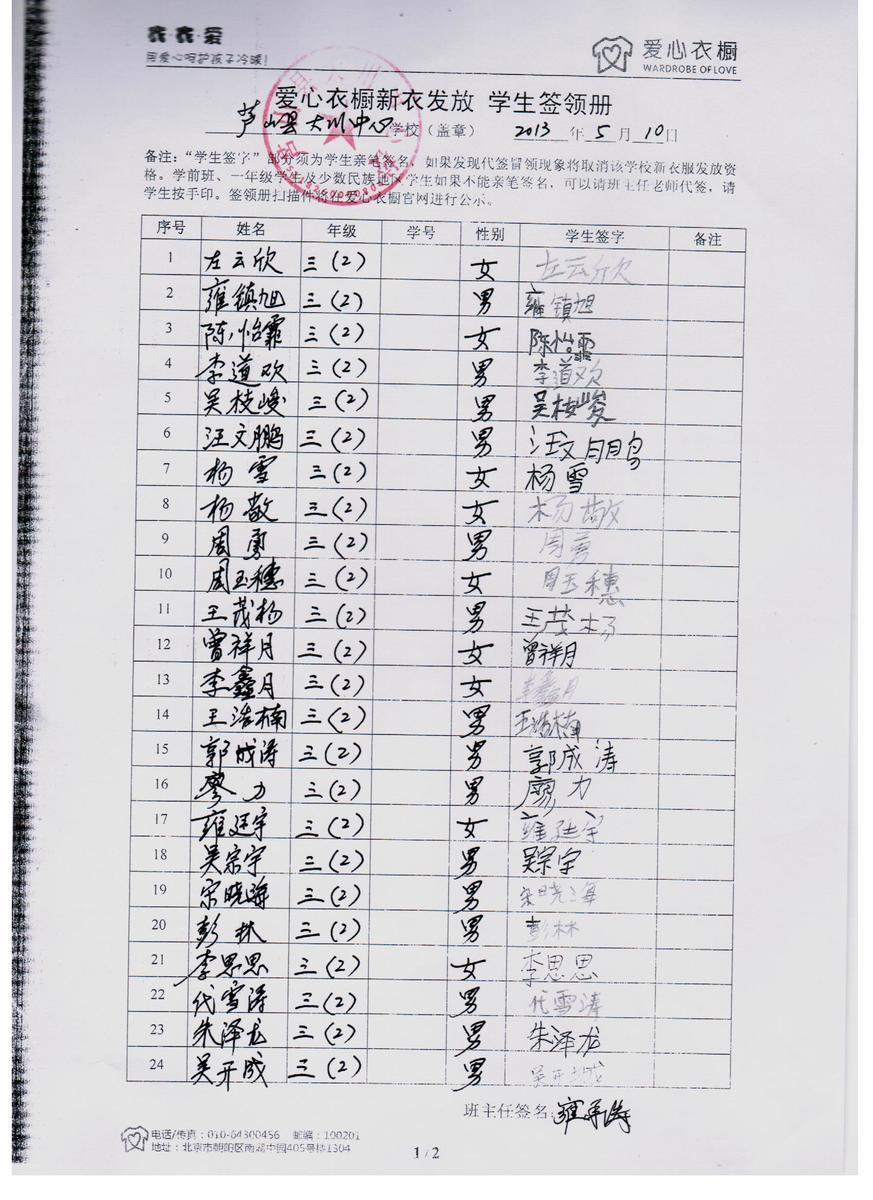 衣·衣·爱
用爱心呵护孩子冷暖!
爱心衣橱
WARDROBE OF LOVE
爱心衣橱新衣发放 学生签领册
芦山县大川中心学校（盖章） 2013 年 5 月 10 日
备注：“学生签字”部分须为学生亲笔签名，如果发现代签冒领现象将取消该学校新衣服发放资
格。学前班、一年级学生及少数民族地区学生如果不能亲笔签名，可以请班主任老师代签，请
学生按手印。签领册扫描件将在爱心衣橱官网进行公示。
序号 姓名 年级 学号 性别 学生签字 备注
1 左云欣 三(2) 女 左云欣
2 雍镇旭 三(2) 男 雍镇旭
3 陈怡霏 三(2) 女 陈怡霏
4 李道欢 三(2) 男 李道欢
5 吴枝峻 三(2) 男 吴枝峻
6 汪文鹏 三(2) 男 汪文鹏
7 杨雪 三(2) 女 杨雪
8 杨敬 三(2) 女 杨敬
9 周勇 三(2) 男 周勇
10 周玉穗 三(2) 女 周玉穗
11 王茂杨 三(2) 男 王茂杨
12 曾祥月 三(2) 女 曾祥月
13 李鑫月 三(2) 女 李鑫月
14 王浩楠 三(2) 男 王浩楠
15 郭成涛 三(2) 男 郭成涛
16 廖力 三(2) 男 廖力
17 雍廷宇 三(2) 女 雍廷宇
18 吴宗宇 三(2) 男 吴宗宇
19 宋晓海 三(2) 男 宋晓海
20 彭林 三(2) 男 彭林
21 李思思 三(2) 女 李思思
22 代雪涛 三(2) 男 代雪涛
23 朱泽龙 三(2) 男 朱泽龙
24 吴开成 三(2) 男 吴开城
班主任签名:
电话/传真：010-64300456 邮编：100201
地址：北京市朝阳区南湖中园405号楼1304
1 / 2